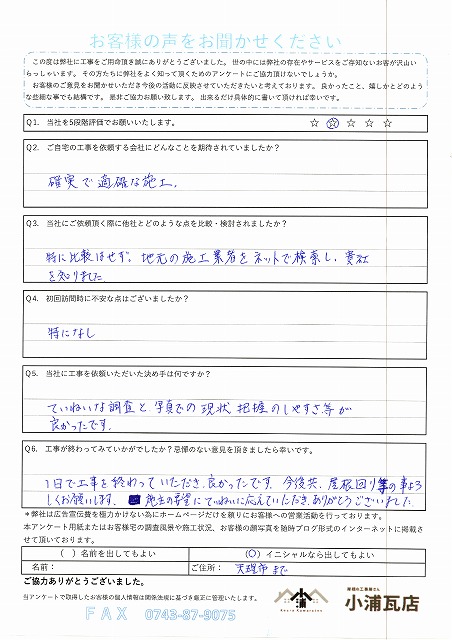 お客様の声をお聞かせください
この度は弊社に工事をご用命頂き誠にありがとうございました。世の中には弊社の存在やサービスをご存知ないお客が沢山い
らっしゃいます。その方たちに弊社をよく知って頂くためのアンケートにご協力頂けないでしょうか。
お客様のご意見をお聞かせいただき今後の活動に反映させていただきたいと考えております。良かったこと、嬉しかとどのよう
な些細な事でも結構です。是非ご協力お願い致します。出来るだけ具体的に書いて頂ければ幸いです。
Q1. 当社を5段階評価でお願いいたします。 ☆ ☆ ☆ ☆ ☆
Q2. ご自宅の工事を依頼する会社にどんなことを期待されていましたか?
確実で適確な施工。
Q3. 当社にご依頼頂く際に他社とどのような点を比較・検討されましたか?
特に比較はせず。地元の施工業者をネットで検索し、貴社
を知りました
Q4. 初回訪問時に不安な点はございましたか?
特になし
Q5. 当社に工事を依頼いただいた決め手は何ですか?
ていねいな調査と写真での現状把握のしやすさ等が
良かったです。
Q6. 工事が終わってみていかがでしたか?忌憚のない意見を頂きましたら幸いです。
1日で工事を終わっていただき、良かったです。今後共、屋根回り等の事よろ
しくお願いします。施主の希望にていねいに応えていただき、ありがとうございました
*弊社は広告宣伝費を極力かけない為にホームページだけを頼りにお客様への営業活動を行っております。
本アンケート用紙またはお客様宅の調査風景や施工状況、お客様の顔写真を随時ブログ形式のインターネットに掲載さ
せて頂いております。
( )名前を出してもよい (〇)イニシャルなら出してもよい
名前: ご住所: 天理市まで
ご協力ありがとうございました。
当アンケートで取得したお客様の個人情報は関係法規に基づき厳正に管理いたします。
FAX 0743-87-9075
屋根の工事屋さん
小浦瓦店